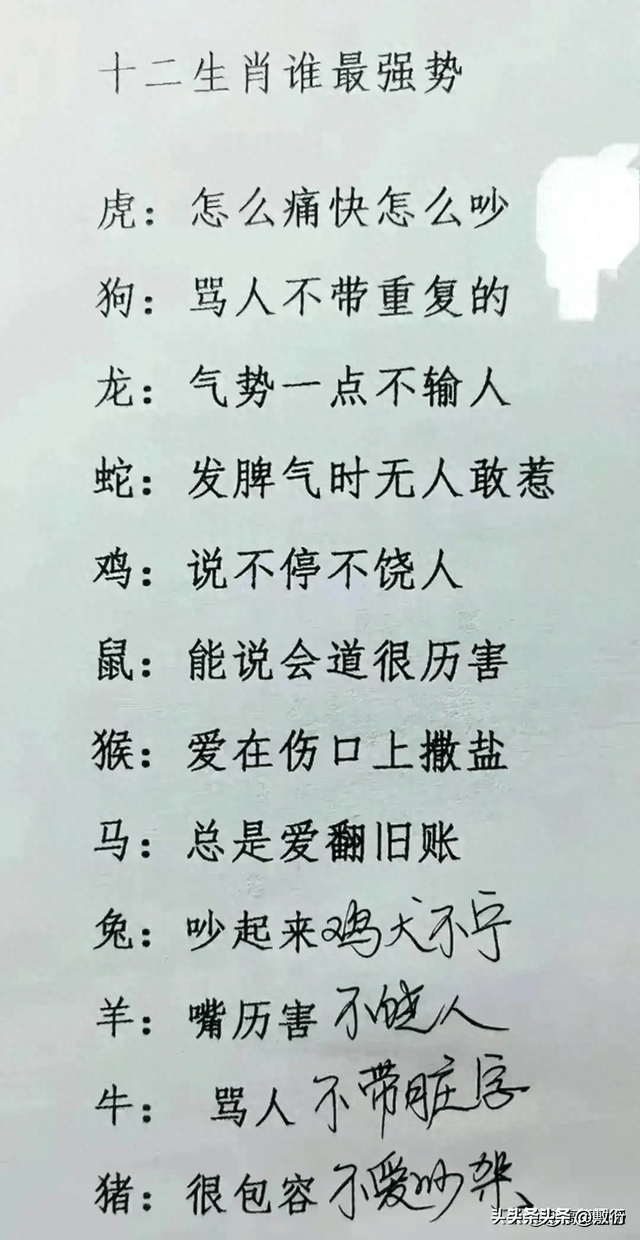 十二生肖谁最强势
虎：怎么痛快怎么吵
狗：骂人不带重复的
龙：气势一点不输人
蛇：发脾气时无人敢惹
鸡：说不停不饶人
鼠：能说会道很历害
猴：爱在伤口上撒盐
马：总是爱翻旧账
兔：吵起来鸡犬不宁
羊：嘴历害不饶人
牛：骂人不带脏字
猪：很包容不爱吵架、